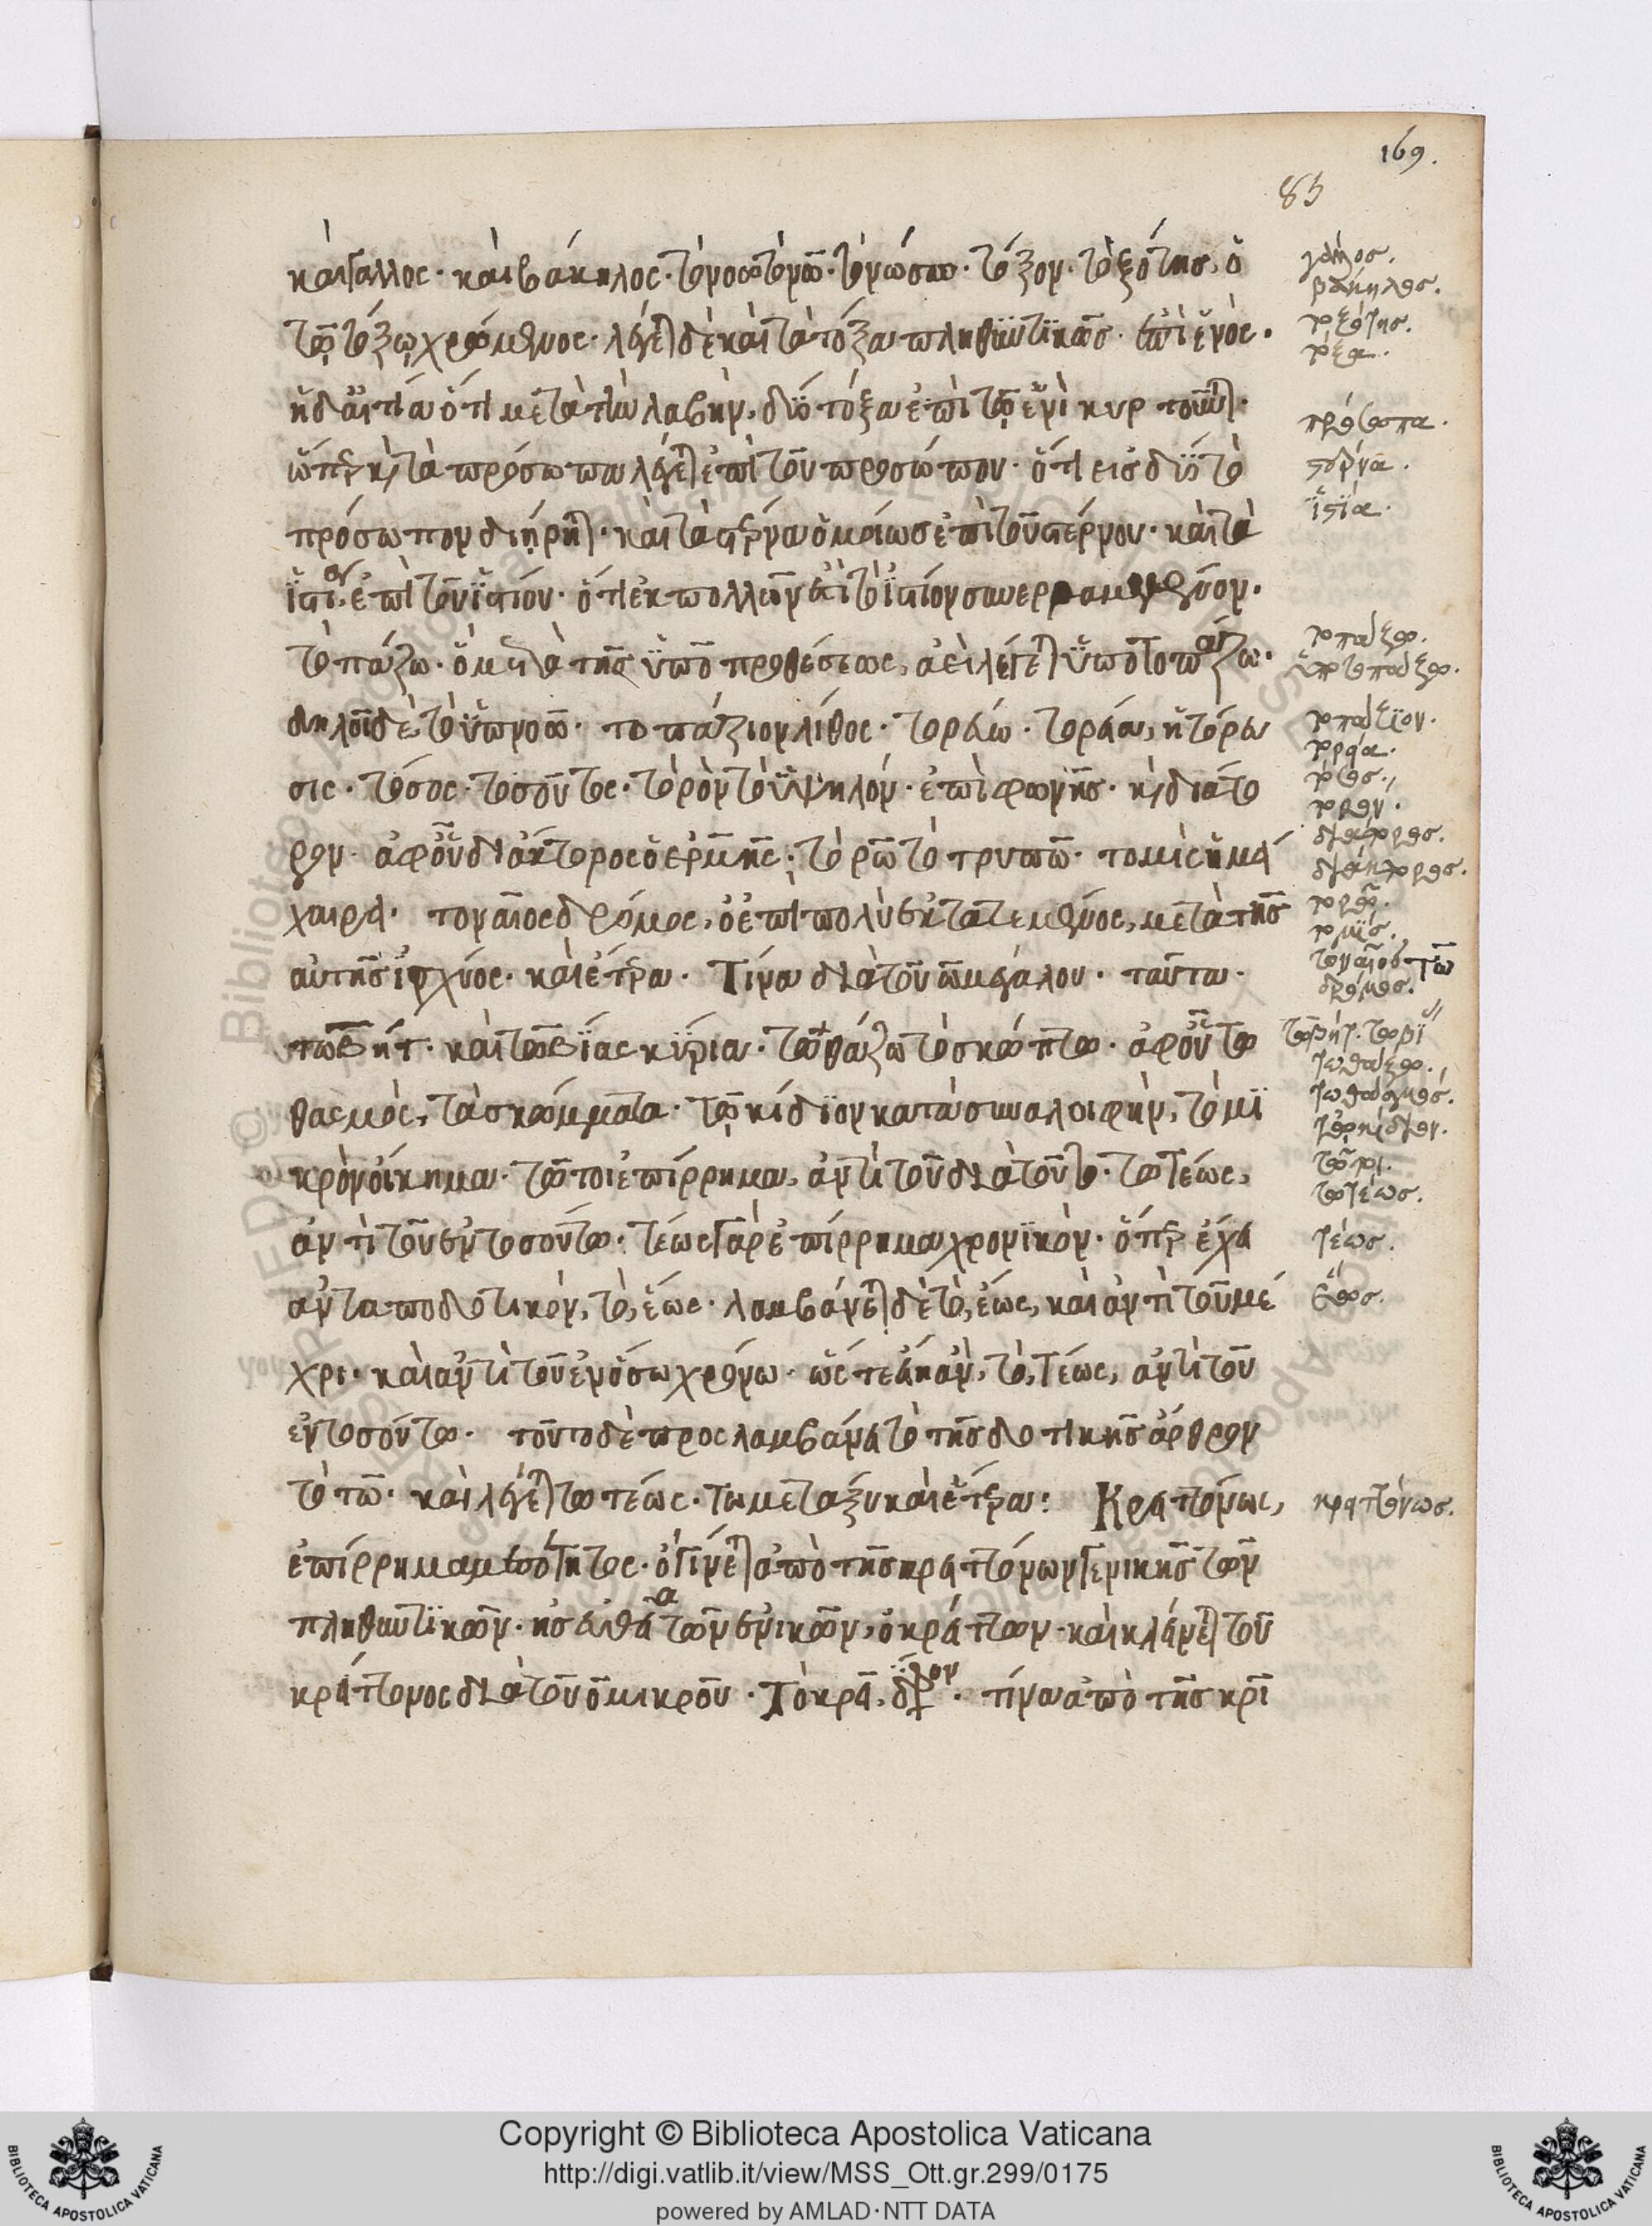 169.
83
καὶ γάλλος· καὶ βάκηλος· τόνος τονῶ· τονώσω· τόξον· τοξότης, ὁ
τῷ τόξῳ χρώμενος· λέγεται δὲ καὶ τὰ τόξα πληθυντικῶς· ἐπὶ ἑνός·
ὅτι μετὰ τὴν λαβὴν, δύο τόξα ἐπὶ τῷ ἑνὶ
ὥσπερ καὶ τὰ πρόσωπα λέγεται ἐπὶ τοῦ προσώπου· ὅτι εἰς δύο τὸ
πρόσωπον διῄρηται· καὶ τὰ στέρνα ὁμοίως ἐπὶ τοῦ στέρνου· καὶ τὰ
ἱστία ἐπὶ τοῦ ἱστίου· ὅτι ἐκ πολλῶν ἐστὶ τὸ ἱστίον συνερραμμένον·
τοπάζω· ὃ μετὰ τῆς ὑπὸ προθέσεως, ἀεὶ λέγεται ὑποτοπάζω·
δηλοῖ δὲ τὸ ὑπονοῶ· τοπάζιον λίθος· τορεύω· τορεία, ἢ τόρευ
σις· τόσος· τοσοῦτος· τορὸν τὸ ὑψηλόν· ἐπὶ φωνῆς· καὶ διάτο
ρον· ἀφ' οὗ διάκτορος ὁ ἑρμῆς· τορῶ τὸ τρυπῶ· τομὶς ἡ μά
χαιρα· τοναῖος δρόμος, ὁ ἐπὶ πολὺ ἐκτατεμένος, μετὰ τῆς
αὐτῆς ἰσχύος· καὶ ἕτερα· Τίνα διὰ τοῦ ω μεγάλου· ταῦτα·
τωβήτ· καὶ τωβίας κύρια· τωθάζω τὸ σκώπτω· ἀφ' οὗ τω
θασμὸς, τὰ σκώμματα· τῳκίδιον κατὰ συναλοιφὴν, τὸ μι
κρὸν οἴκημα· τῶτοι ἐπίρρημα, ἀντὶ τοῦ διὰ τοῦτο· τωτέως,
ἀντὶ τοῦ ἐν τοσούτω· τέως γὰρ ἐπίρρημα χρονικὸν· ὅπερ ἔχει
ἀνταποδοτικὸν, τὸ, ἕως· λαμβάνεται δὲ τὸ, ἕως, καὶ ἀντὶ τοῦ μέ
χρι· καὶ ἀντὶ τοῦ ἐν ὅσω χρόνω· ὥστε κἂν, τὸ, τέως, ἀντὶ τοῦ
ἐν τοσούτω· τοῦτο δὲ προσλαμβάνει τὸ τῆς δοτικῆς ἄρθρον
τὸ τῶ· καὶ λέγεται τωτέως· τωμεταξὺ καὶ ἕτερα: Κρειττόνως,
ἐπίρρημα ποιότητος· ὃ γίνεται ἀπὸ τῆς κρειττόνων γενικῆς τῶν
πληθυντικῶν· ἧς εὐθεῖα τῶν ἑνικῶν, ὁ κρείττων· καὶ κλίνεται τοῦ
κρείττονος διὰ τοῦ ο μικροῦ· Τὸ κρει, δίφθογγον· τίνα ἀπὸ τῆς κρι
γάλλος.
βάκηλος.
τοξότης.
τόξα.
πρόσωπα.
στέρνα.
ἱστία.
τοπάζω.
ὑποτοπάζω.
τοπάζιον.
τορεία.
τόσος.
τορον.
διάτορος.
διάκτορος.
τορῶ.
τομίς.
τοναῖος
δρόμος. τω
τωβήτ. τωβί
τωθάζω.
τωθασμός.
τῳκίδιον.
τῶτοι.
τωτέως.
τέως.
ἕως.
κρειττόνως.
Copyright © Biblioteca Apostolica Vaticana
http://digi.vatlib.it/view/MSS_Ott.gr.299/0175
powered by AMLAD·NTT DATA